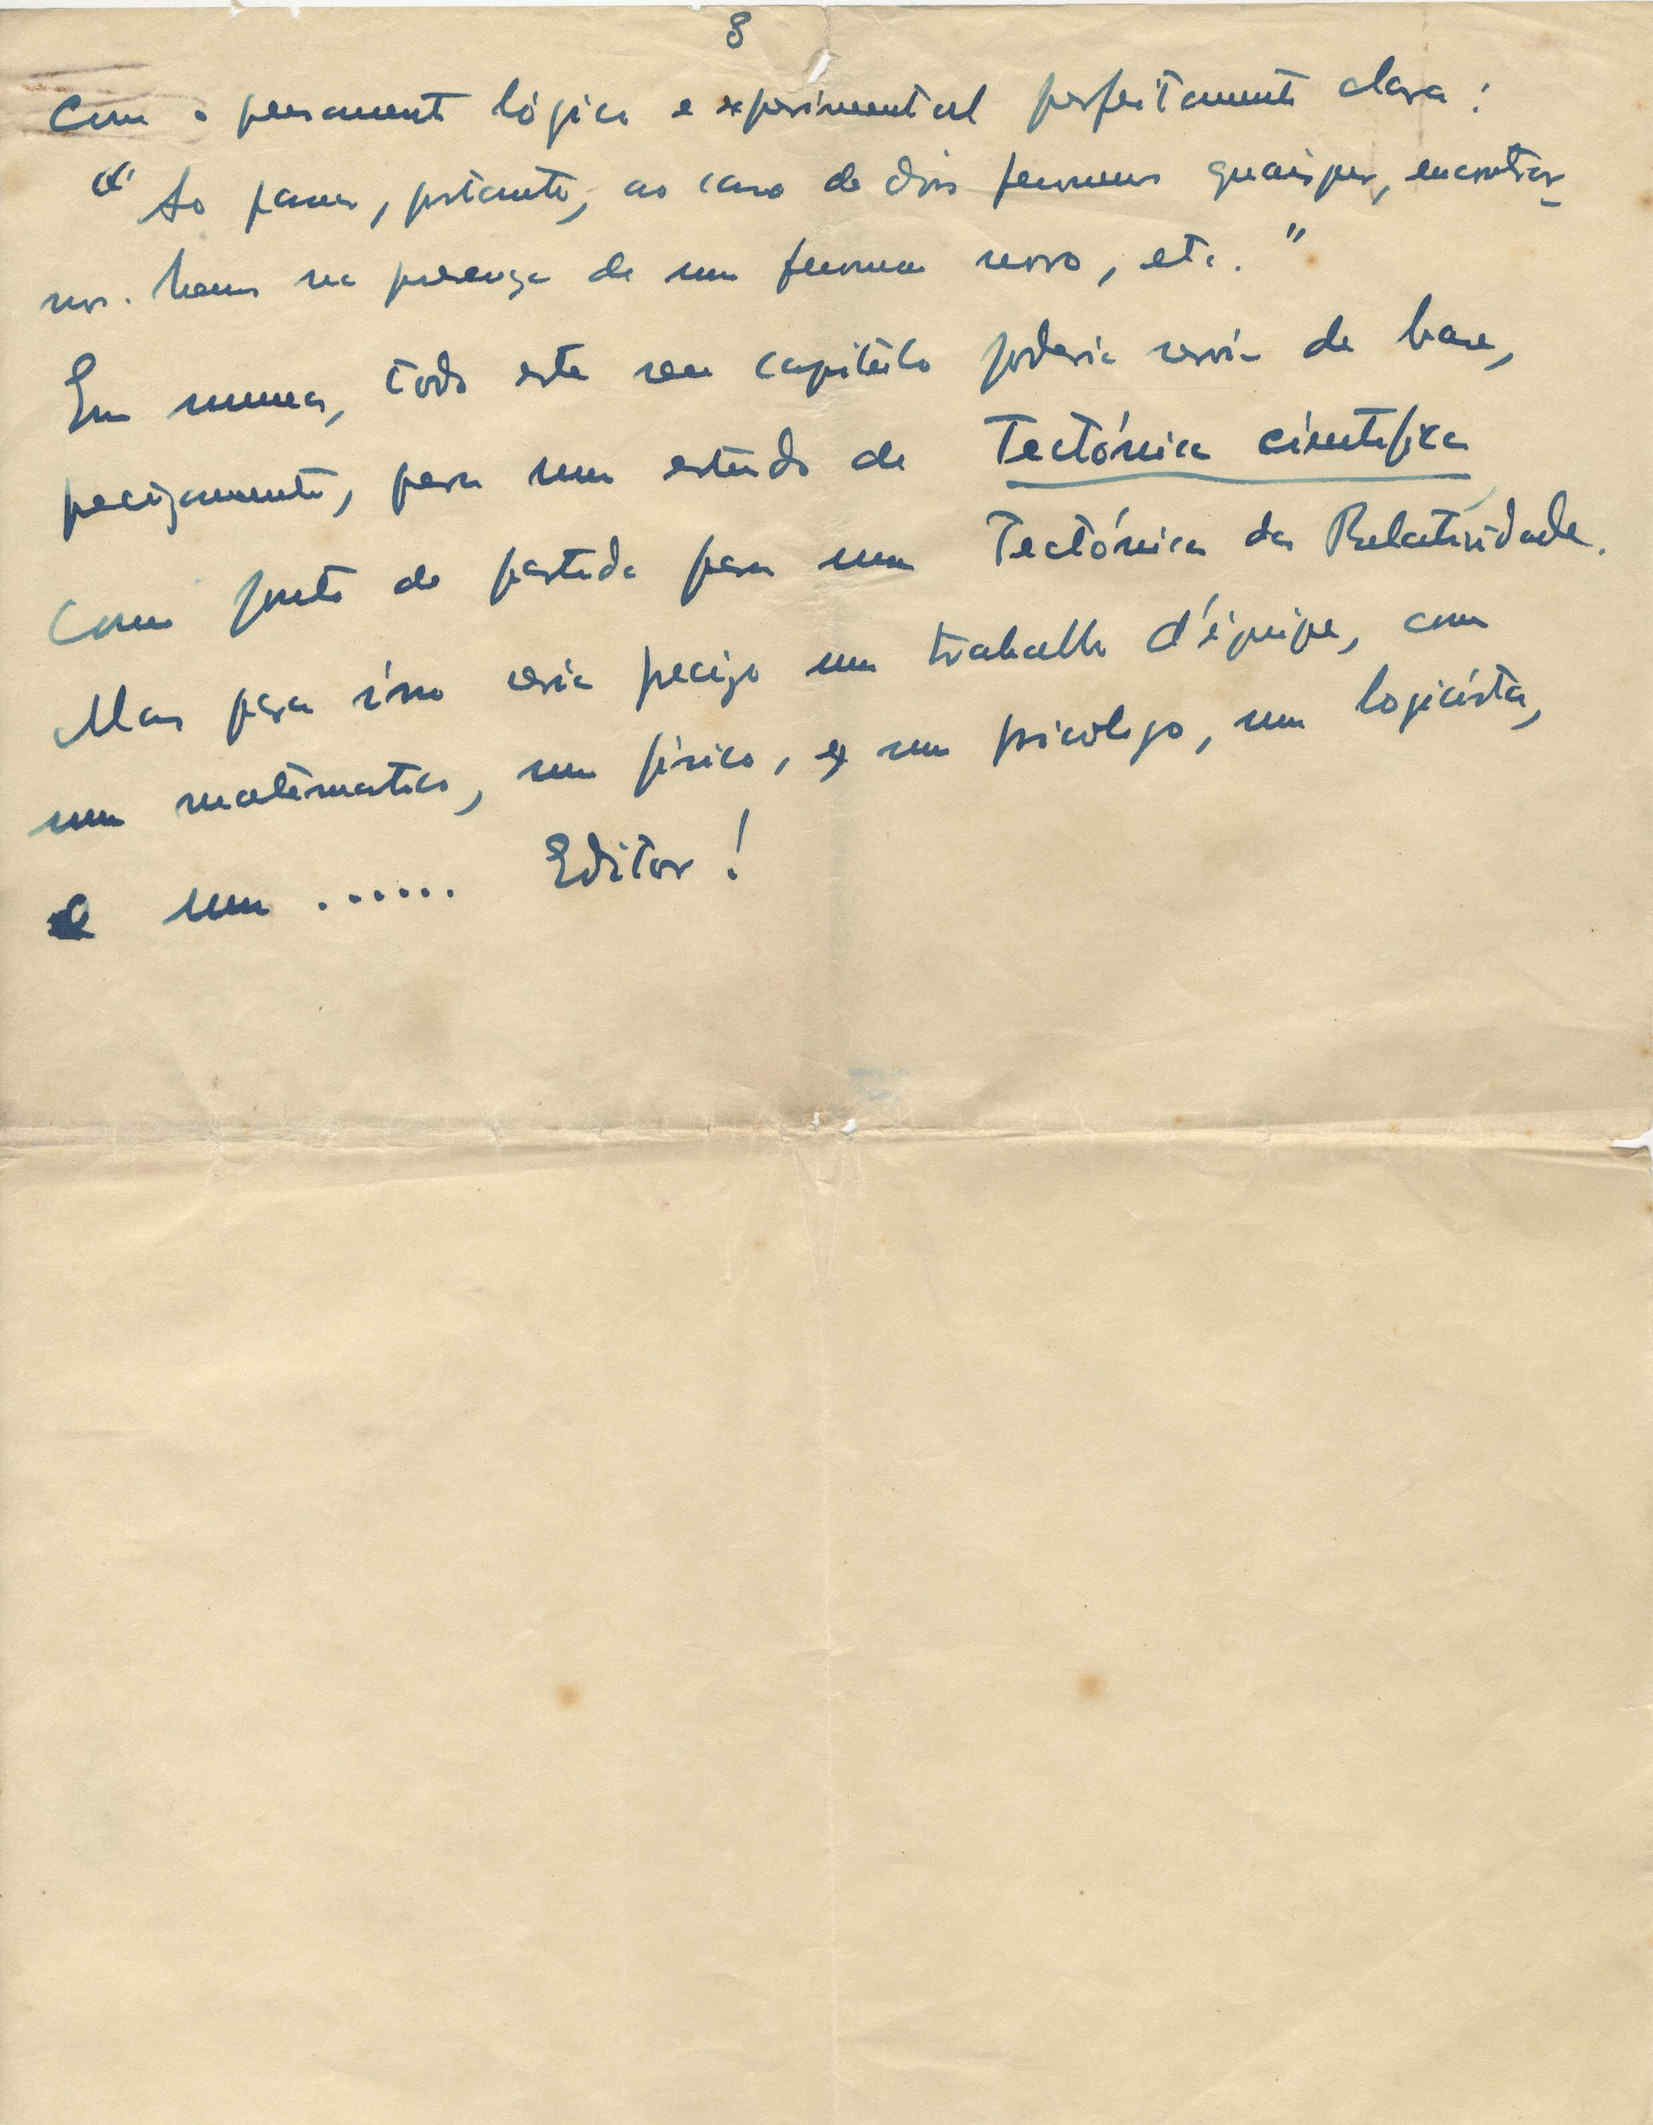 8
Com o pensamento lógico e experimental perfeitamente clara:
"Ao passar, portanto, ao caso de dois fenomenos quaisquer, encontrar-
nos-hemos na presença de um fenomeno novo, etc."
Em suma, todo este seu capítulo poderia servir de base,
precizamente, para um estudo de Tectónica cientifica
Como ponto de partida para uma Tectónica da Relatividade.
Mas para isso seria precizo um trabalho d'équipe, com
um matematico, um físico, um psicólogo, um logicista,
e um ...... Editor!